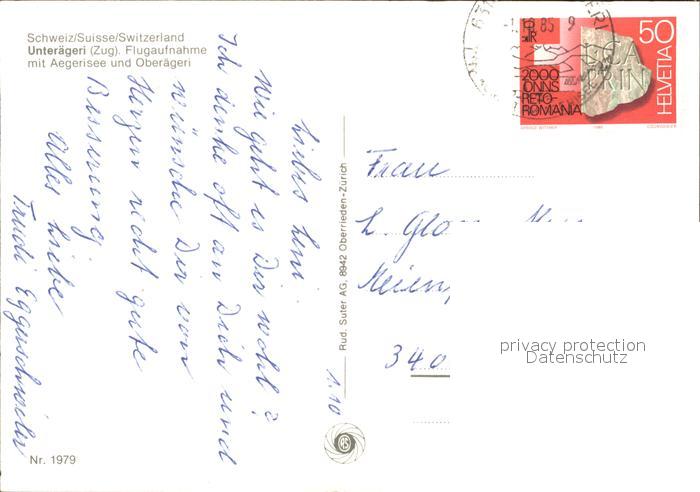 Schweiz/Suisse/Switzerland
Unterägeri (Zug). Flugaufnahme
mit Aegerisee und Oberägeri
1.10
Liebes Leni.
Wie geht es Dir wohl?
Ich denke oft an Dich und
wünsche Dir von
Herzen recht gute
Besserung.
Alles Liebe
Trudi Eggerschwiler
Nr. 1979
Rud. Suter AG, 8942 Oberrieden-Zürich
RS
50
HELVETIA
2000
ONNS
RETO-
ROMANIA
85 9
Frau
L. Glo
Meien,
340
privacy protection
Datenschutz